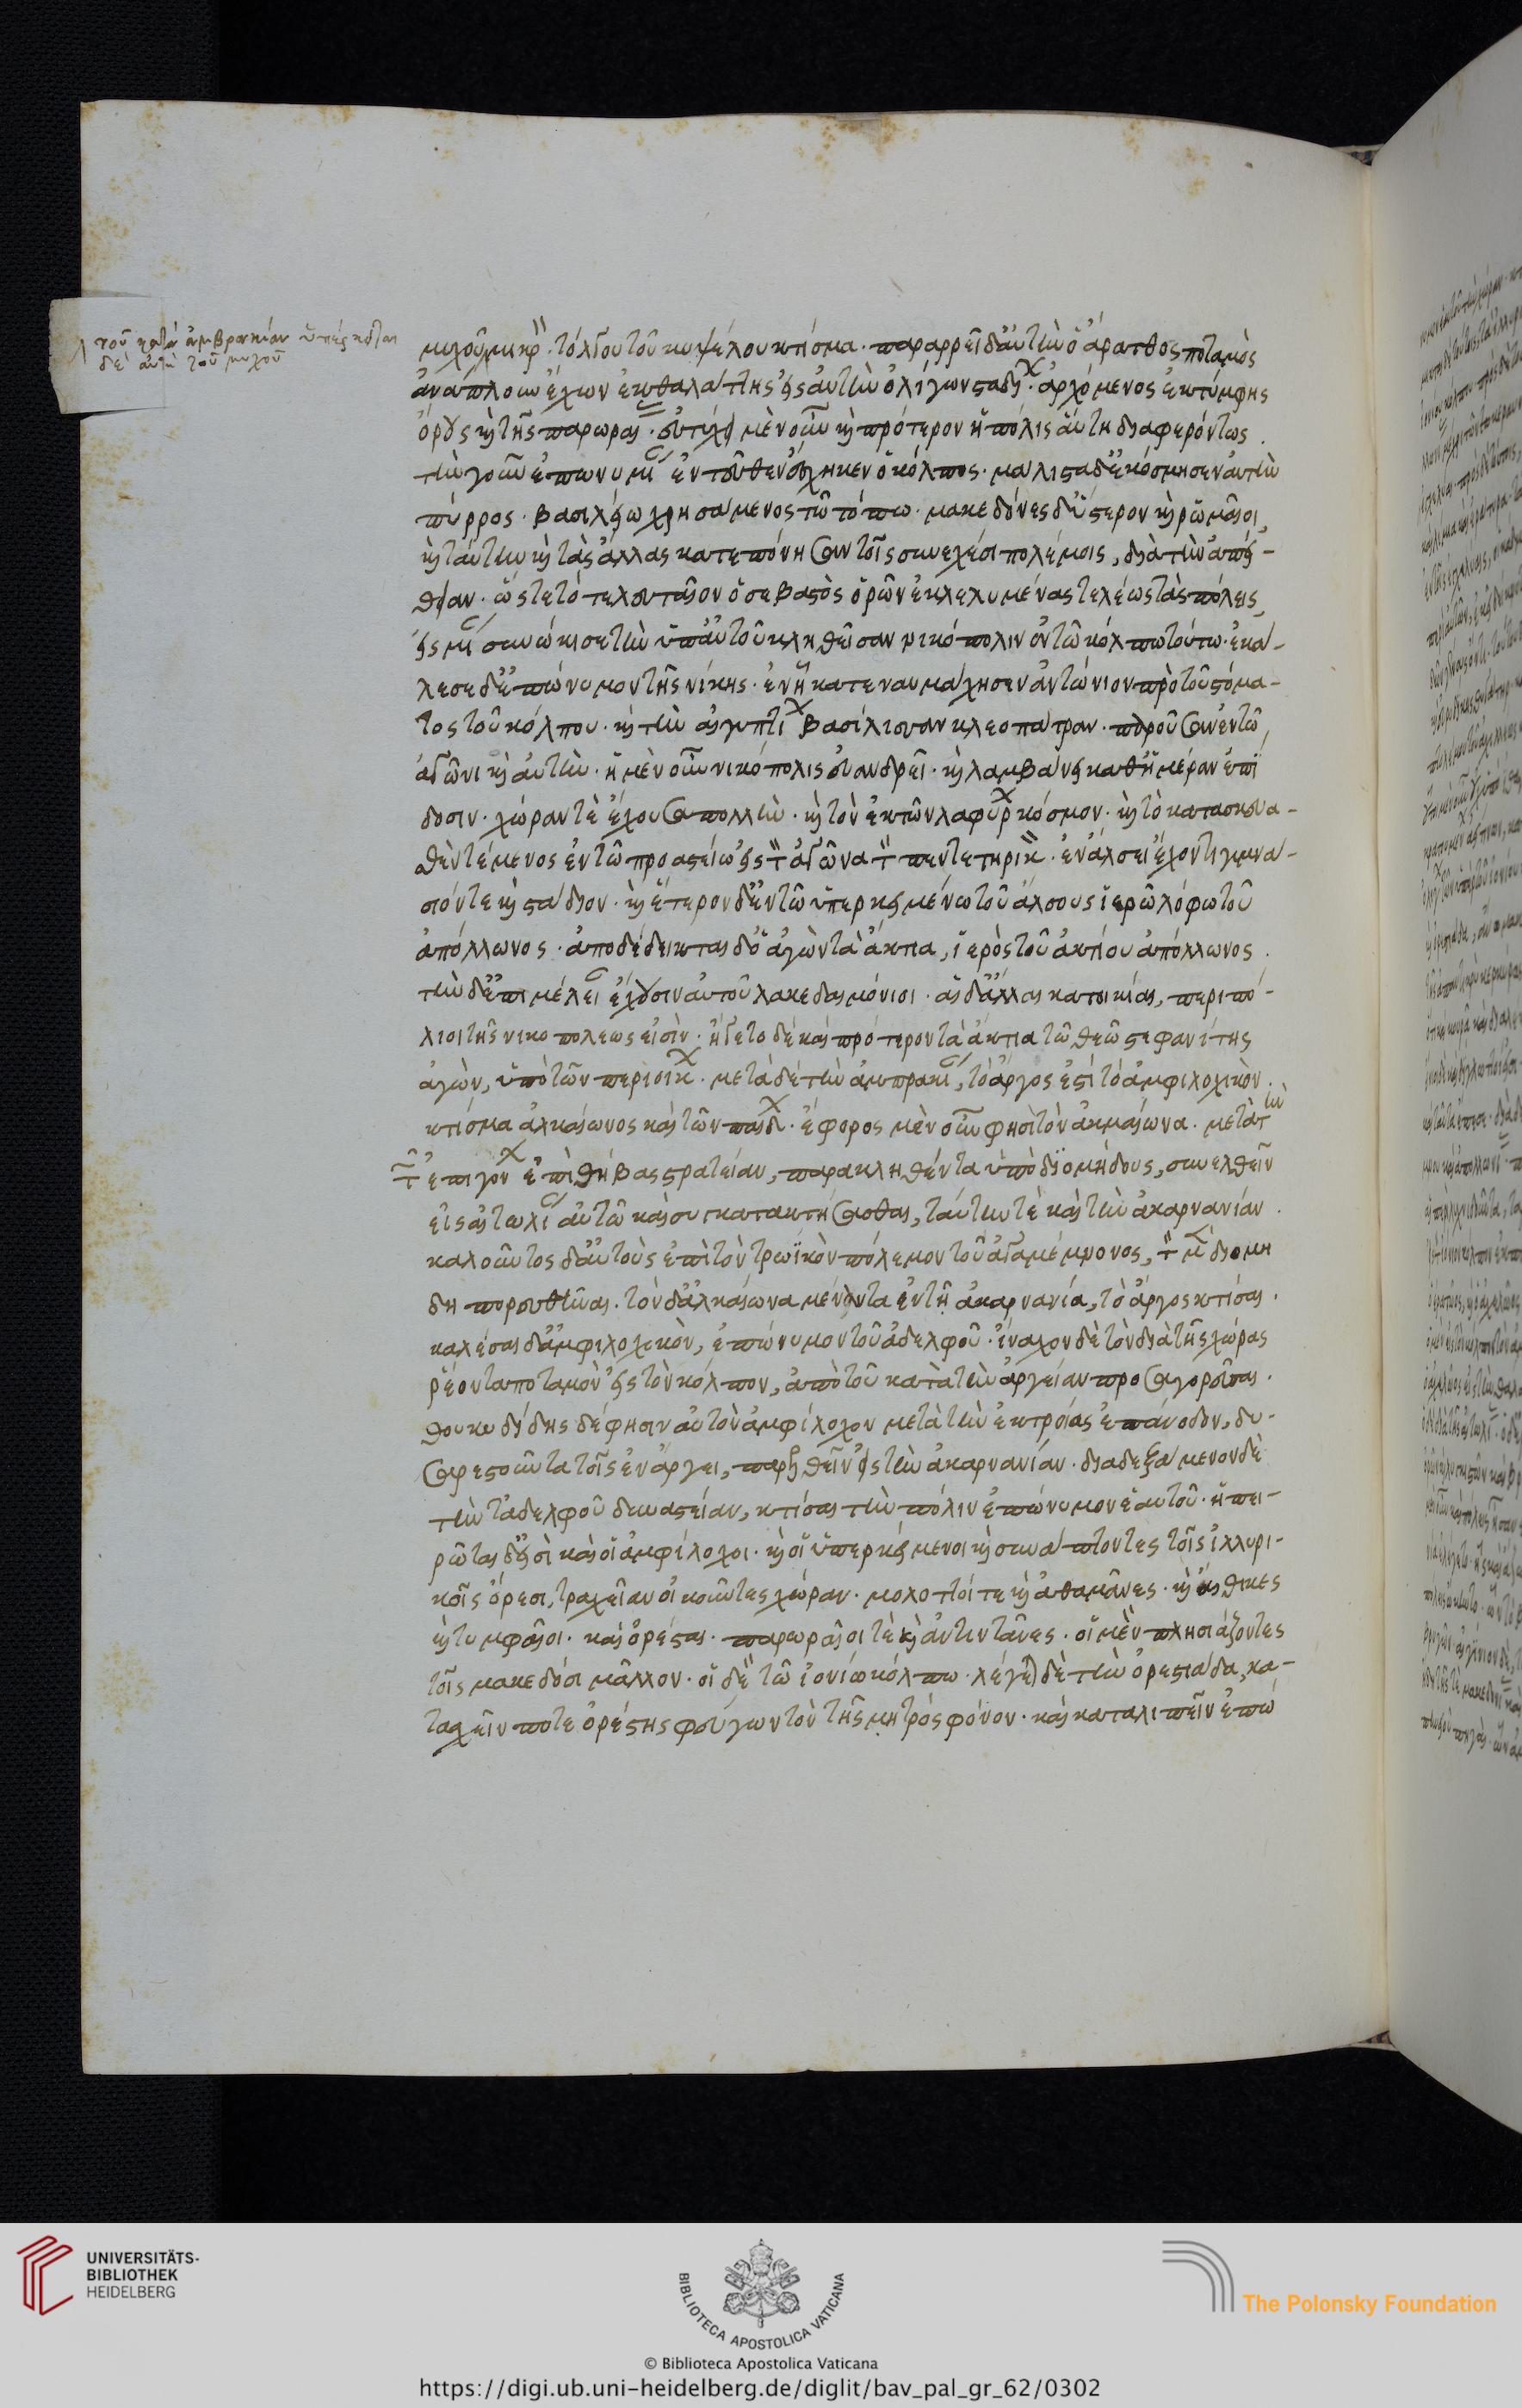 τοῦ κατὰ ἀμβρακίαν ὑπέρκειται
δὲ αὐτὴ τοῦ μυχοῦ
μυχοῦ μικρὸν. τόλγου τοῦ κυψέλου κτίσμα. παραρρεῖ δ' αὐτὴν ὁ ἄρατθος ποταμὸς
ἀνάπλουν ἔχων ἐκ θαλάττης εἰς αὐτὴν ὀλίγων σταδίων. ἀρχόμενος ἐκ τύμφης
ὄρους καὶ τῆς παρωραίας. εὐτύχει μὲν οὖν καὶ πρότερον ἡ πόλις αὕτη διαφερόντως.
τὴν γοῦν ἐπωνυμίαν ἐντεῦθεν ἔσχηκεν ὁ κόλπος. μάλιστα δ' ἐκόσμησεν αὐτὴν
πύρρος. βασιλείω χρησάμενος τῶ τόπω. μακεδόνες δ' ὕστερον καὶ ῥωμαῖοι,
καὶ ταύτην καὶ τὰς ἄλλας κατεπόνησαν τοῖς συνεχέσι πολέμοις, διὰ τὴν ἀπεί-
θειαν. ὥστε τὸ τελευταῖον ὁ σεβαστὸς ὁρῶν ἐκλελυμένας τελέως τὰς πόλεις,
εἰς μίαν συνώκισε τὴν ὑπ' αὐτοῦ κληθεῖσαν νικόπολιν ἐν τῶ κόλπω τούτω. ἐκά-
λεσε δ' ἐπώνυμον τῆς νίκης. ἐν ἧ κατεναυμάχησεν ἀντώνιον πρὸ τοῦ στόμα-
τος τοῦ κόλπου. καὶ τὴν αἰγυπτίων βασίλισσαν κλεοπάτραν. παροῦσαν ἐν τῶ
ἀγῶνι καὶ αὐτὴν. ἡ μὲν οὖν νικόπολις εὐανδρεῖ. καὶ λαμβάνει καθ' ἡμέραν ἐπί
δοσιν. χώραν τὲ ἔχουσα πολλὴν. καὶ τὸν ἐκ τῶν λαφύρων κόσμον. καὶ τὸ κατασκευα-
σθὲν τέμενος ἐν τῶ προαστείω εἰς τὸν ἀγῶνα τὸν πεντετηρικὸν. ἐν ἄλσει ἔχοντι γυμνά-
σιόν τε καὶ στάδιον. καὶ ἕτερον δ' ἐν τῶ ὑπερκειμένω τοῦ ἄλσους ἱερῶ λόφω τοῦ
ἀπόλλωνος. ἀποδέδεικται δ' ὁ ἀγὼν τὰ ἄκτια, ἱερὸς τοῦ ἀκτίου ἀπόλλωνος.
τὴν δ' ἐπιμέλειαν ἔχουσιν αὐτοῦ λακεδαιμόνιοι. αἱ δ' ἄλλαι κατοικίαι, περιπό-
λιοι τῆς νικοπόλεως εἰσίν. ἤγετο δὲ καὶ πρότερον τὰ ἄκτια τῶ θεῶ στεφανίτης
ἀγὼν, ὑπὸ τῶν περιοίκων. μετὰ δὲ τὴν ἀμπρακίαν, τὸ ἄργος ἐστὶ τὸ ἀμφιλοχικὸν.
κτίσμα ἀλκμαίωνος καὶ τῶν παίδων. ἔφορος μὲν οὖν φησὶ τὸν ἀκμαίωνα. μετὰ τὴν
τῶν ἐπιγόνων ἐπὶ θήβας στρατείαν, παρακληθέντα ὑπὸ διομήδους, συνελθεῖν
εἰς αἰτωλίαν αὐτῶ καὶ συγκατακτήσασθαι, ταύτην τὲ καὶ τὴν ἀκαρνανίαν.
καλοῦντος δ' αὐτοὺς ἐπὶ τὸν τρωϊκὸν πόλεμον τοῦ ἀγαμέμνονος, τὸν μὲν διομή
δη πορευθῆναι. τὸν δ' ἀλκμαίωνα μένοντα ἐν τῆ ἀκαρνανία, τὸ ἄργος κτίσαι.
καλέσαι δ' ἀμφιλοχικὸν, ἐπώνυμον τοῦ ἀδελφοῦ. ἴναχον δὲ τὸν διὰ τῆς χώρας
ῥέοντα ποταμὸν εἰς τὸν κόλπον, ἀπὸ τοῦ κατὰ τὴν ἀργείαν προσαγορεῦσαι.
θουκυδίδης δέ φησιν αὐτὸν ἀμφίλοχον μετὰ τὴν ἐκ τροίας ἐπάνοδον, δυ-
σαρεστοῦντα τοῖς ἐν ἄργει, παρελθεῖν εἰς τὴν ἀκαρνανίαν. διαδεξάμενον δὲ
τὴν τἀδελφοῦ δυναστείαν, κτίσαι τὴν πόλιν ἐπώνυμον ἑαυτοῦ. ἠπει-
ρῶται δ' εἰσὶ καὶ οἱ ἀμφίλοχοι. καὶ οἱ ὑπερκείμενοι καὶ συνάπτοντες τοῖς ἰλλυρι-
κοῖς ὄρεσι, τραχεῖαν οἰκοῦντες χώραν. μολοττοί τε καὶ ἀθαμᾶνες. καὶ αἴθικες
καὶ τυμφαῖοι. καὶ ὀρέσται. παρωραῖοι τὲ καὶ ἀντιντᾶνες. οἱ μὲν πλησιάζοντες
τοῖς μακεδόσι μᾶλλον. οἱ δὲ τῶ ἰονίω κόλπω. λέγεται δὲ τὴν ὀρεστιάδα, κα-
τασχεῖν ποτε ὀρέστης φεύγων τὸν τῆς μητρός φόνον. καὶ καταλιπεῖν ἐπώ
UNIVERSITÄTS-
BIBLIOTHEK
HEIDELBERG
BIBLIOTECA APOSTOLICA VATICANA
© Biblioteca Apostolica Vaticana
The Polonsky Foundation
https://digi.ub.uni-heidelberg.de/diglit/bav_pal_gr_62/0302